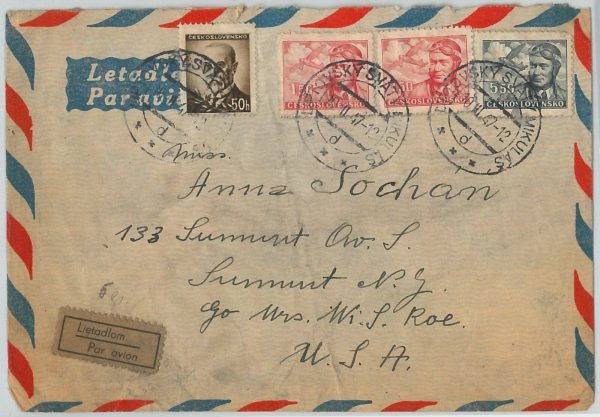 Letadlem
Par avion
ČESKOSLOVENSKO
50h
1.50
ČESKOSLOVENSKO
ČESKOSLOVENSKO
5.50
ČESKOSLOVENSKO
SKÝ SVÄTÝ MIKULÁŠ
47-12
d
Miss.
Anna Sochan
133 Summit Av. S.
Summit N.J.
c/o Mrs. W. S. Roe.
U. S. A.
Lietadlom
Par avion